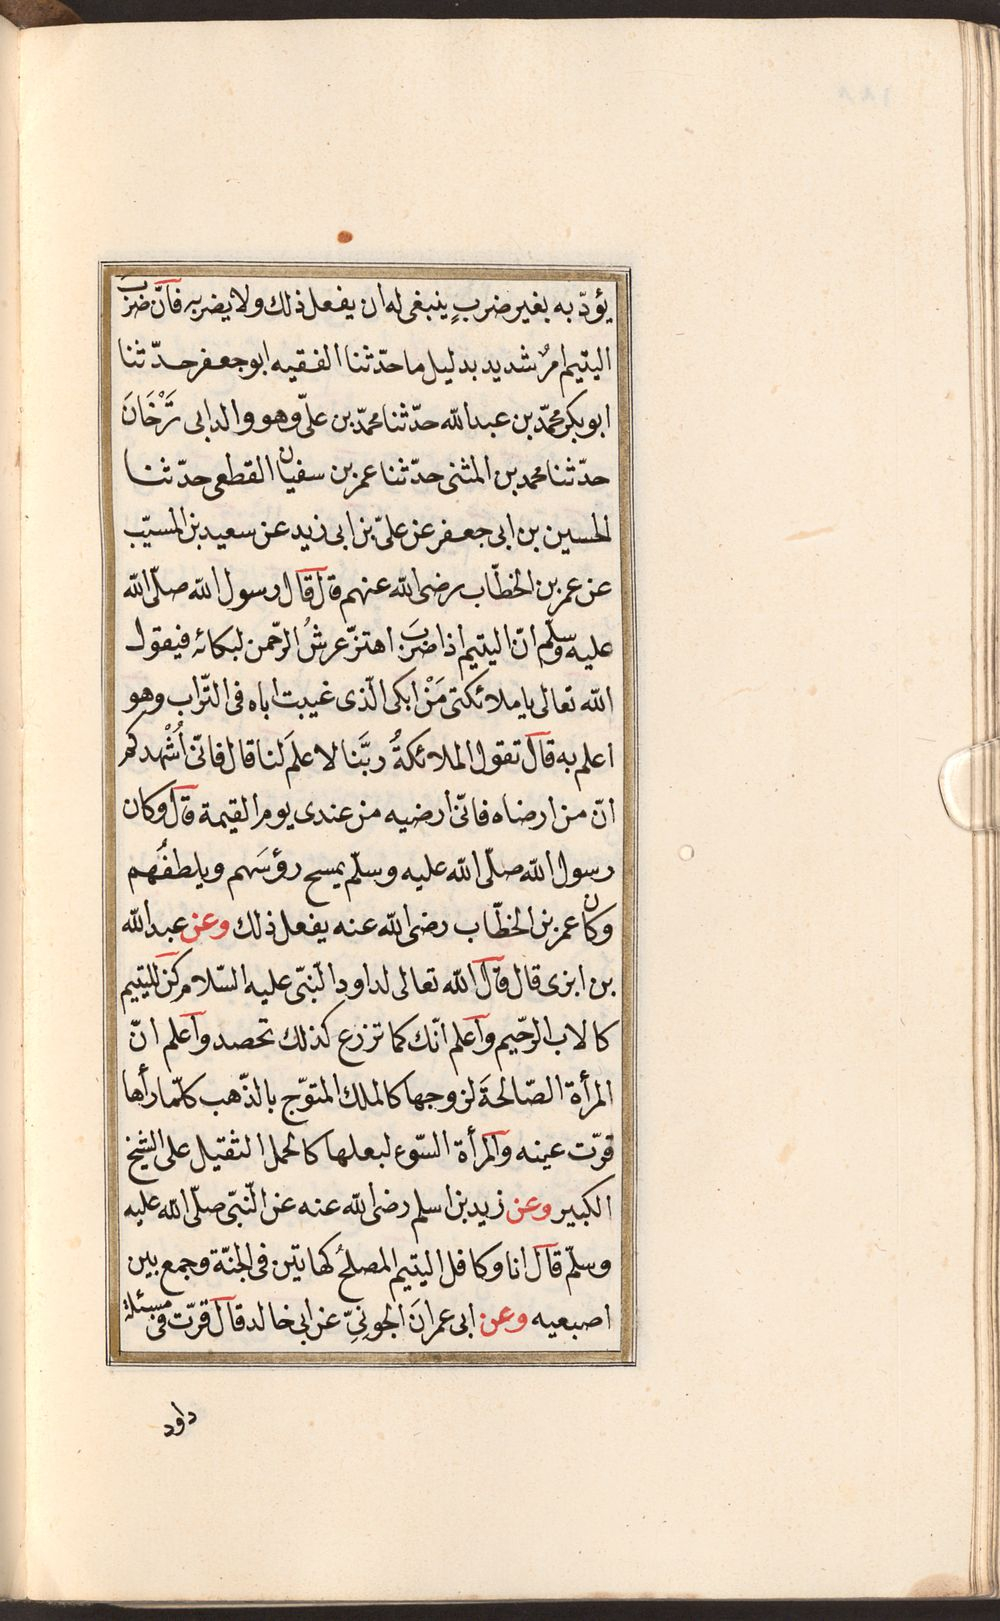 يؤدّبه بغير ضربٍ ينبغى له ان يفعل ذلك ولا يضربه فانّ ضربَ
اليتيم امرٌ شديد بدليل ما حدّثنا الفقيه ابو جعفر حدّثنا
ابو بكر محمّد بن عبد الله حدّثنا محمّد بن علىّ وهو والد ابى تَرْخَانَ
حدّثنا محمد بن المثنى حدّثنا عمر بن سفيان القطعى حدّثنا
الحسين بن ابى جعفر عن علىّ بن ابى زيد عن سعيد بن المسيّب
عن عمر بن الخطّاب رضى الله عنهم قال قال رسول الله صلّى الله
عليه وسلّم انّ اليتيم اذا ضربَ اهتزّ عرشُ الرّحمن لبكائه فيقول
الله تعالى يا ملائكتى مَنْ ابكى الّذى غيبت اباه فى التّراب وهو
اعلم به قال تقول الملائكةُ ربَّنا لا علمَ لنا قال فانّى أُشْهدكم
انّ من ارضاه فانّى ارضيه من عندى يوم القيمة قال وكان
رسول الله صلّى الله عليه وسلّم يمسح رؤسَهم ويلطفُهم
وكان عمر بن الخطّاب رضى الله عنه يفعل ذلك وعن عبد الله
بن ابزى قال قال الله تعالى لداود النّبىّ عليه السّلام كن لليتيم
كالاب الرّحيم واعلم انّك كما تزرع كذلك تحصد واعلم انّ
المرأة الصّالحةَ لزوجها كالملك المتوّج بالذّهب كلّما رأها
قرّت عينه والمرأة السّوء لبعلها كالحمل الثقيل على الشيخ
الكبير وعن زيد بن اسلم رضى الله عنه عن النّبىّ صلّى الله عليه
وسلّم قال انا وكافل اليتيم المصلح كهاتين فى الجنّة وجمع بين
اصبعيه وعن ابى عمرانَ الجونىِّ عن ابى خالد قال قرّت فى مسئلة
داود